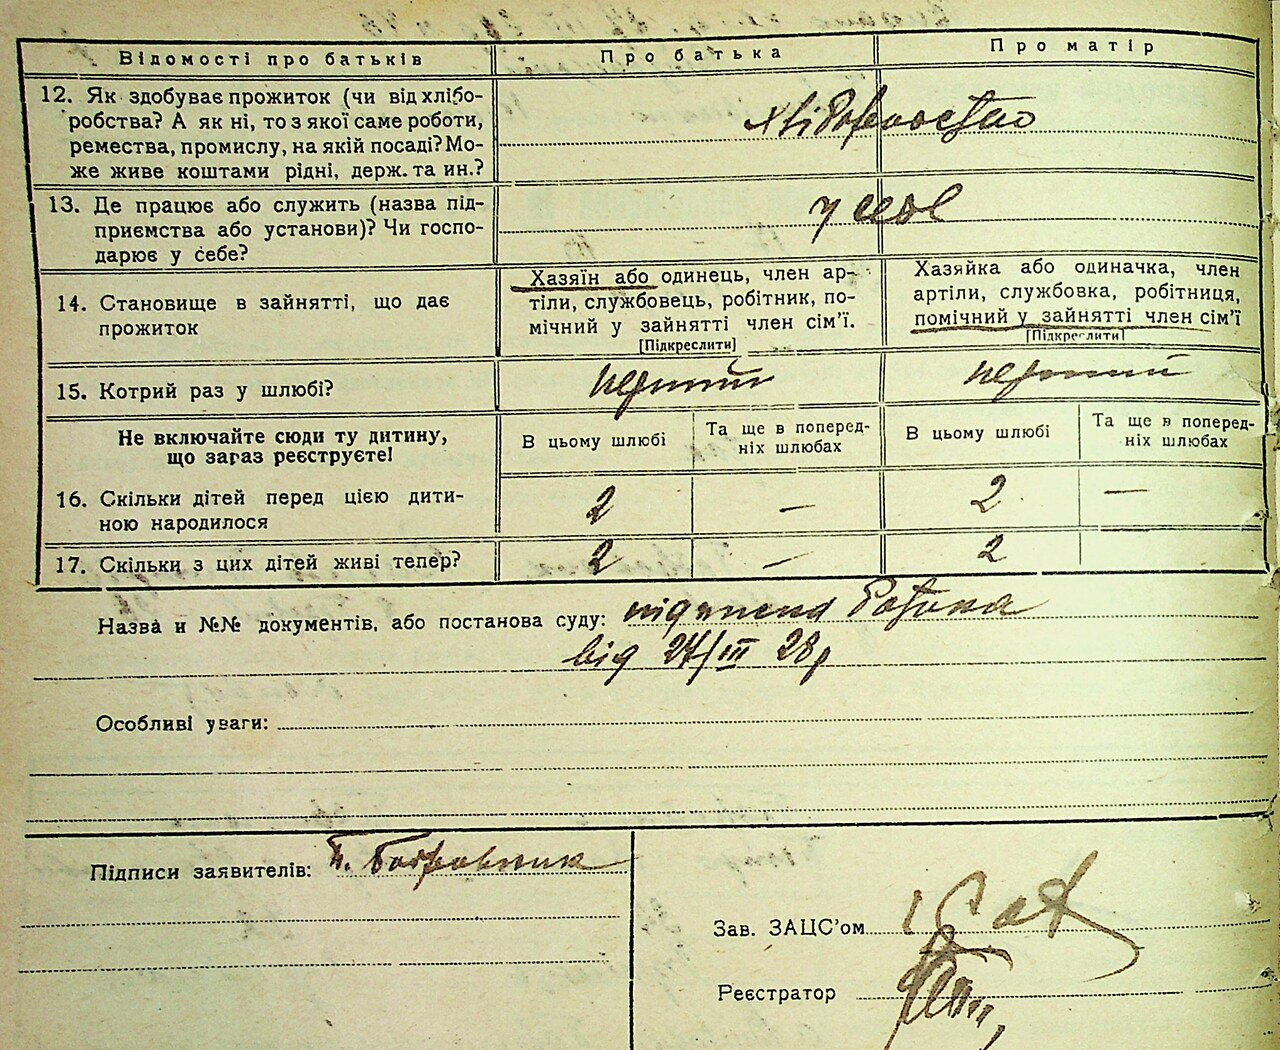 Відомості про батьків
Про батька
Про матір
12. Як здобуває прожиток (чи від хлібо-
робства? А як ні, то з якої саме роботи,
ремества, промислу, на якій посаді? Мо-
же живе коштами рідні, держ. та ин.?
хліборобство
13. Де працює або служить (назва під-
приємства або установи)? Чи госпо-
дарює у себе?
у себе
14. Становище в зайнятті, що дає
прожиток
Хазяїн або одинець, член ар-
тіли, службовець, робітник, по-
мічний у зайнятті член сім'ї.
[Підкреслити]
Хазяйка або одиначка, член
артіли, службовка, робітниця,
помічний у зайнятті член сім'ї
[Підкреслити]
15. Котрий раз у шлюбі?
перший
перший
Не включайте сюди ту дитину,
що зараз реєструєте!
В цьому шлюбі
Та ще в поперед-
ніх шлюбах
В цьому шлюбі
Та ще в поперед-
ніх шлюбах
16. Скільки дітей перед цією дити-
ною народилося
2 — 2 —
17. Скільки з цих дітей живі тепер?
2 — 2
Назва и №№ документів, або постанова суду:
від 27/III 28р
Особливі уваги:
Підписи заявителів:
Зав. ЗАЦС'ом
Реєстратор